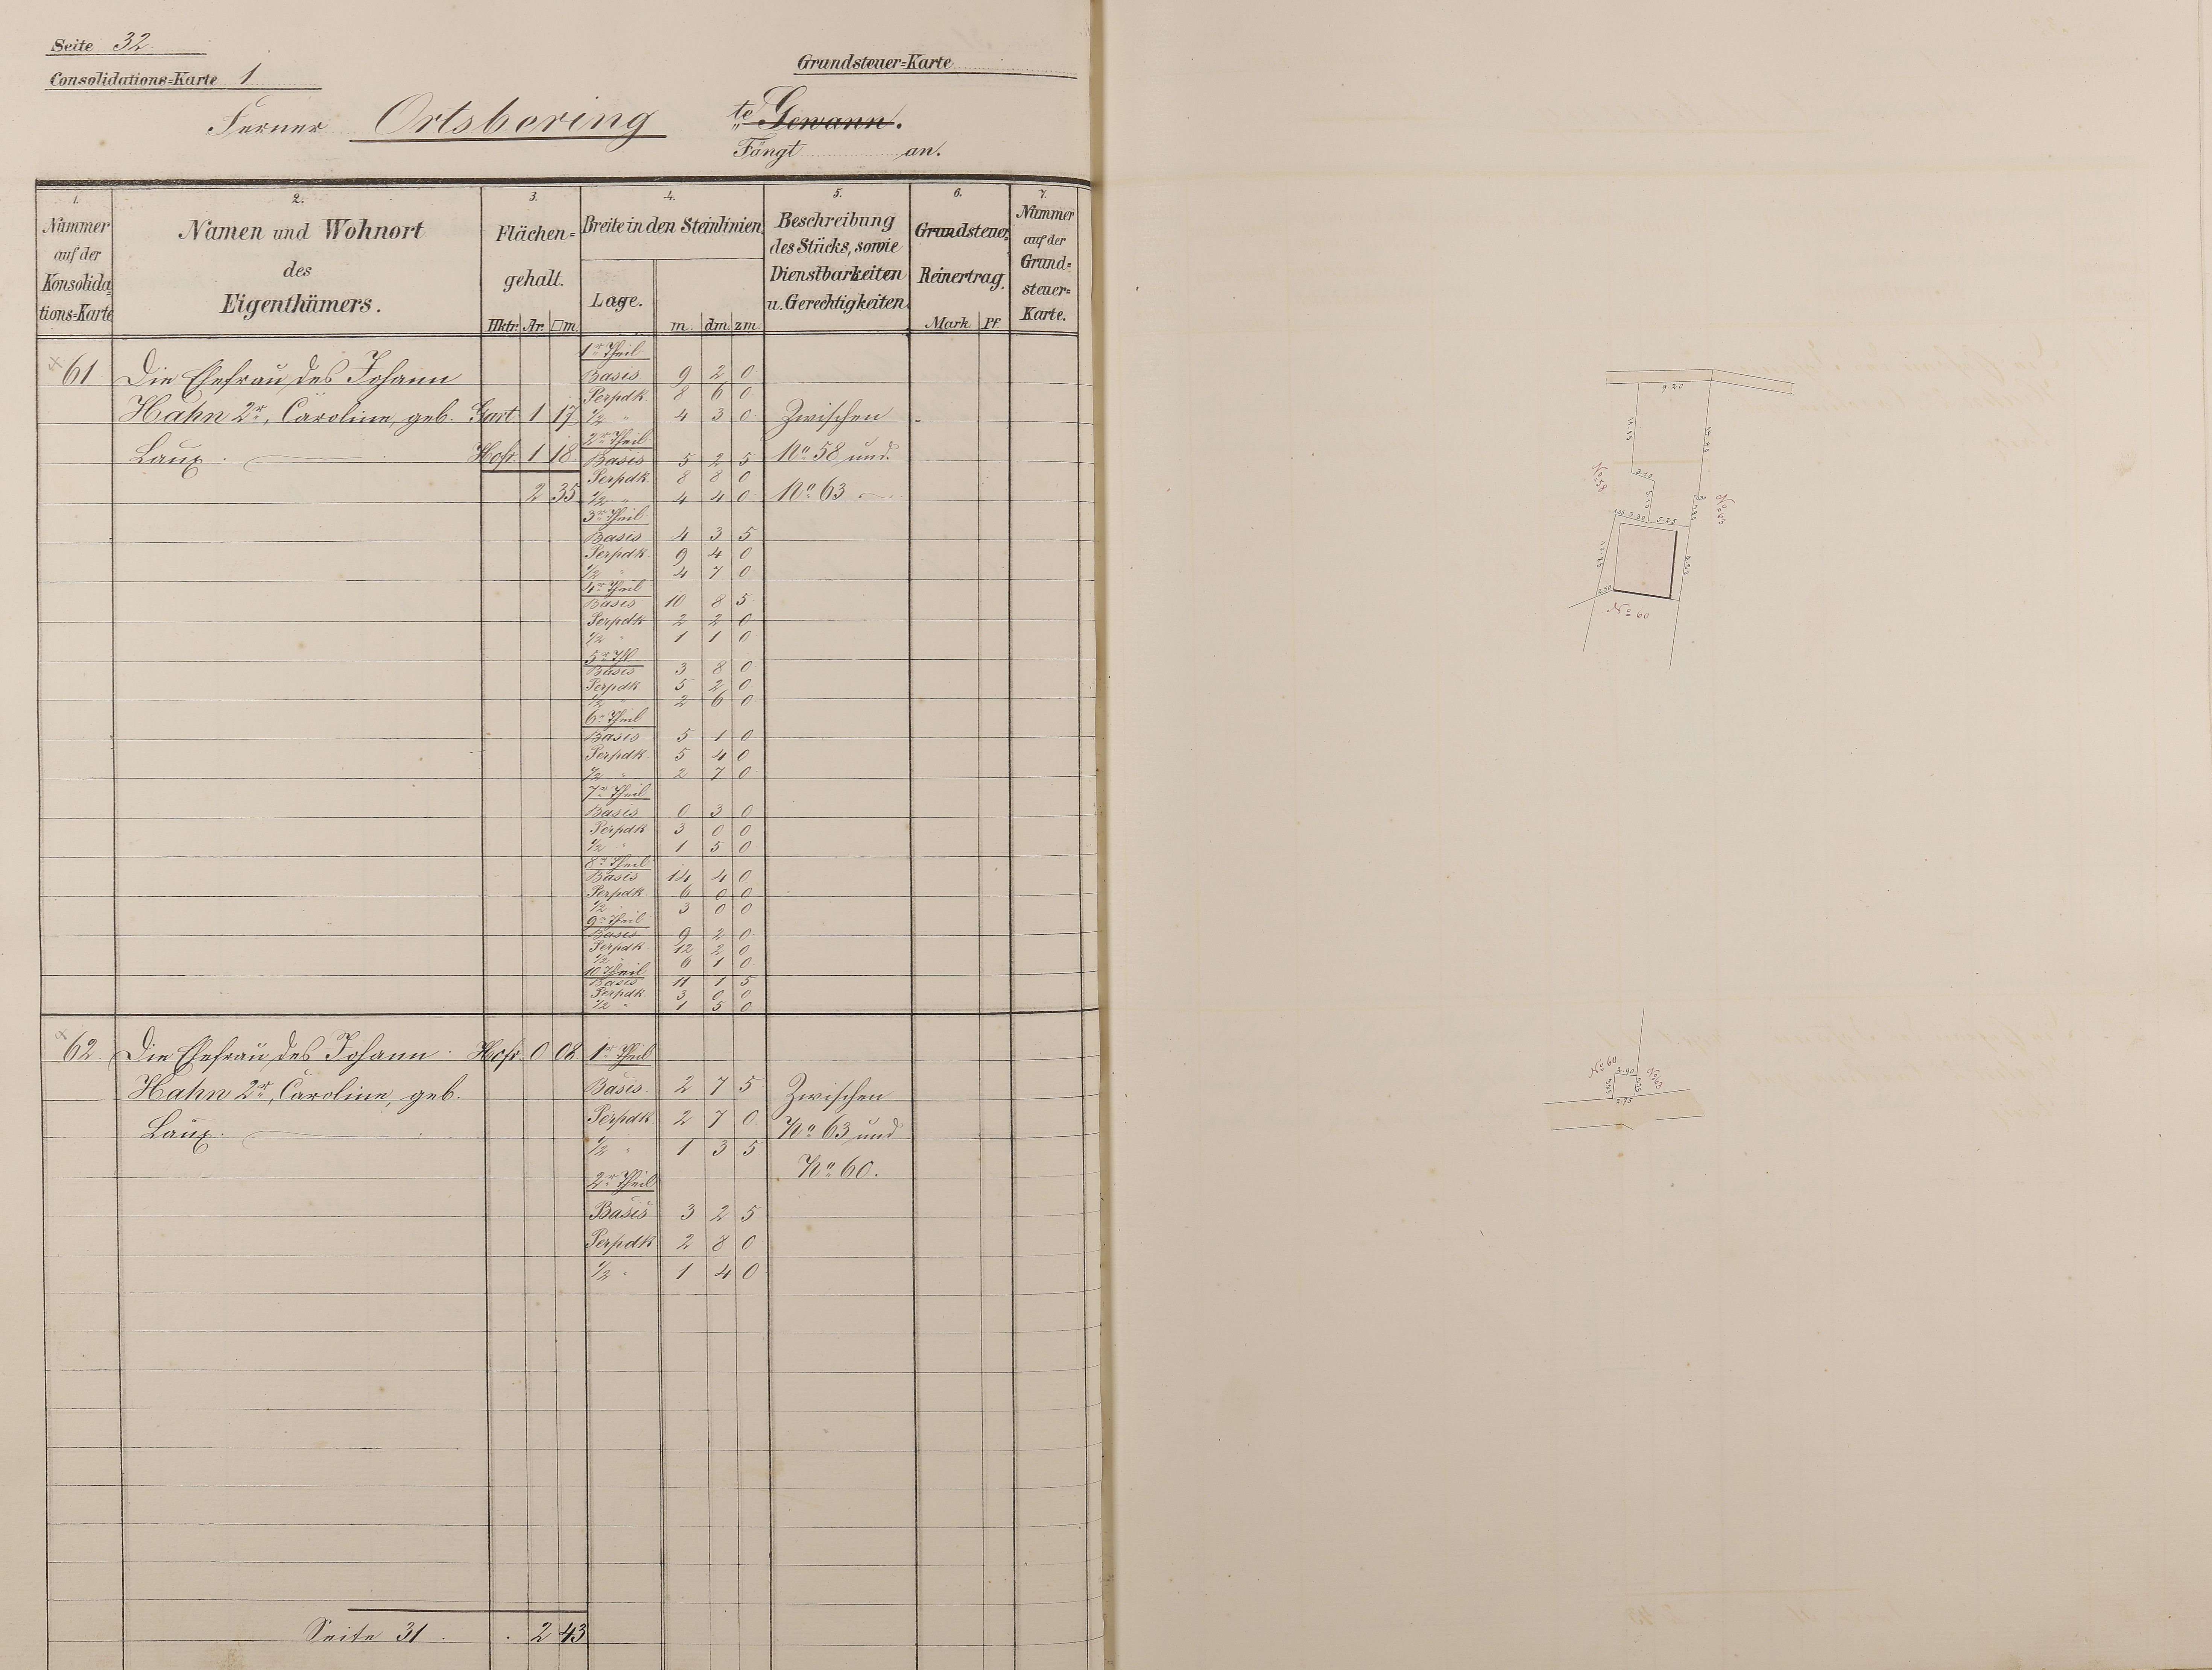 Seite 32.
Consolidations=Karte 1
Grundsteuer=Karte
Ferner Ortsbering te Gewann.
Fängt an.
1. 2. 3. 4. 5. 6. 7.
Nummer auf der Konsolidations=Karte
Namen und Wohnort
des
Eigenthümers.
Flächen=
gehalt.
Hktr. Ar. □m.
Breite in den Steinlinien.
Lage.
m. dm. zm.
Beschreibung
des Stücks, sowie
Dienstbarkeiten
u. Gerechtigkeiten.
Grundsteuer
Reinertrag.
Mark Pf.
Nummer
auf der
Grund=
steuer=
Karte.
61 Die Ehefrau des Johann
Hahn 2r, Caroline, geb. Gart. 1 17
Laux. Hofr. 1 18
2 35
Zwischen
No 58 und
No 63
1r Theil
Basis 9 2 0
Perpdk. 8 6 0
1/2 " 4 3 0
2r Theil
Basis 5 2 5
Perpdk. 8 8 0
1/2 " 4 4 0
3r Theil
Basis 4 3 5
Perpdk. 9 4 0
1/2 " 4 7 0
4r Theil
Basis 10 8 5
Perpdk 2 2 0
1/2 " 1 1 0
5r Thl
Basis 3 8 0
Perpdk. 5 2 0
1/2 " 2 6 0
6r Theil
Basis 5 1 0
Perpdk. 5 4 0
1/2 " 2 7 0
7r Theil
Basis 0 3 0
Perpdk 3 0 0
1/2 " 1 5 0
8r Theil
Basis 14 4 0
Perpdk. 6 0 0
1/2 " 3 0 0
9r Theil
Basis 9 2 0
Perpdk 12 2 0
1/2 " 6 1 0
10 Theil
Basis 11 1 5
Perpdk. 3 0 0
1/2 " 1 5 0
62. Die Ehefrau des Johann Hofr. 0 08
Hahn 2r, Caroline, geb.
Laux.
Zwischen
No 63 und
No 60.
1r Theil
Basis. 2 7 5
Perpdk 2 7 0
1/2 " 1 3 5
2r Theil
Basis 3 2 5
Perpdk 2 8 0
1/2 " 1 4 0
Seite 31. 2 43
9.20
No 58
No 63
3.30 5.25
2.50
No 60
No 60
2.90
No 63
2.75